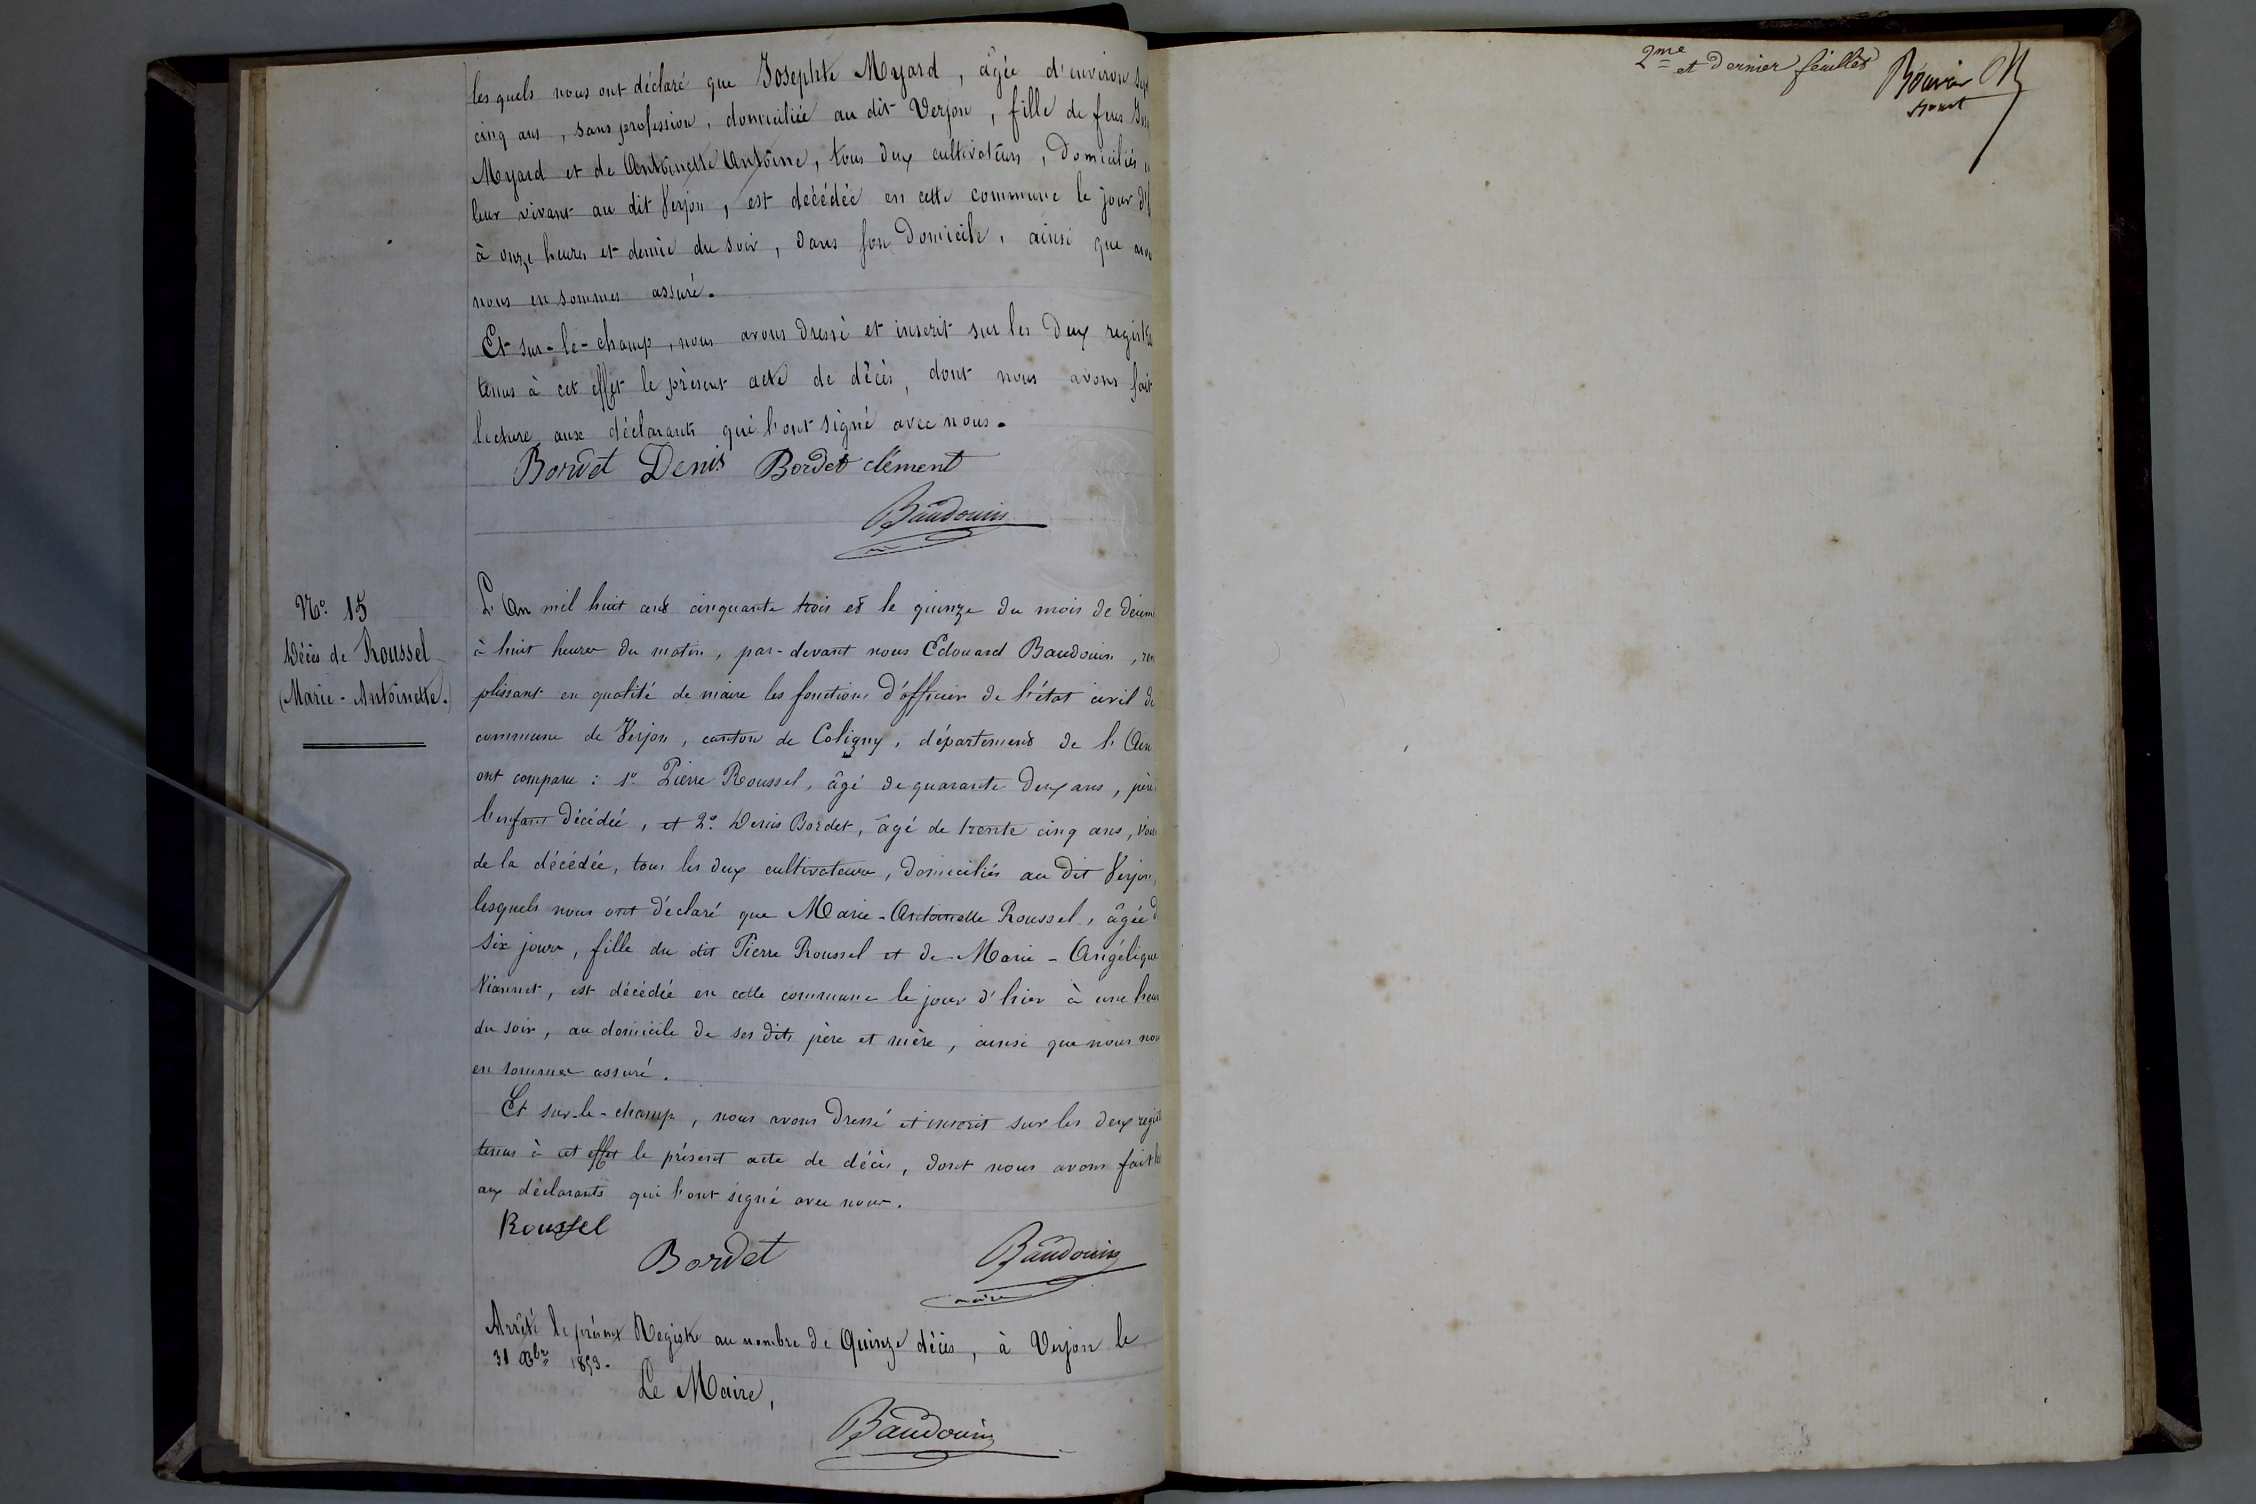 lesquels nous ont déclaré que Josephte Myard, âgée d'environ sept
cinq ans, sans profession, domiciliée au dit Verjon, fille de feus
Myard et de Antoinette Antoine, tous deux cultivateurs, domiciliés
leur vivant au dit Verjon, est décédée en cette commune le jour
à onze heures et demie du soir, dans son domicile, ainsi que
nous en sommes assuré.
Et sur-le-champ, nous avons dressé et inscrit sur les deux registres
tenus à cet effet le présent acte de décès, dont nous avons fait
lecture aux déclarants qui l'ont signé avec nous.
Bordet Denis Bordet clément
Baudouin
No. 15
Décès de Roussel
(Marie-Antoinette.)
L'An mil huit cent cinquante trois et le quinze du mois de décem
à huit heures du matin, par-devant nous Edouard Baudouin, rem
plissant en qualité de maire les fonctions d'officier de l'état civil de
commune de Verjon, canton de Coligny, département de l'Ain
ont comparu : 1o Pierre Roussel, âgé de quarante deux ans, père
l'enfant décédée, et 2o. Denis Bordet, âgé de trente cinq ans, voi
de la décédée, tous les deux cultivateurs, domiciliés au dit Verjon,
lesquels nous ont déclaré que Marie-Antoinette Roussel, âgée d
six jours, fille du dit Pierre Roussel et de Marie-Angélique
Viannet, est décédée en cette commune le jour d'hier à une heur
du soir, au domicile de ses dits père et mère, ainsi que nous nou
en sommes assuré.
Et sur-le-champ, nous avons dressé et inscrit sur les deux regis
tenus à cet effet le présent acte de décès, dont nous avons fait
aux déclarants qui l'ont signé avec nous.
Roussel
Bordet
Baudouin
maire
Arrêté le présent Registre au nombre de Quinze décès, à Verjon le
31 Xbre 1853.
Le Maire,
Baudouin
2me et dernier feuillet